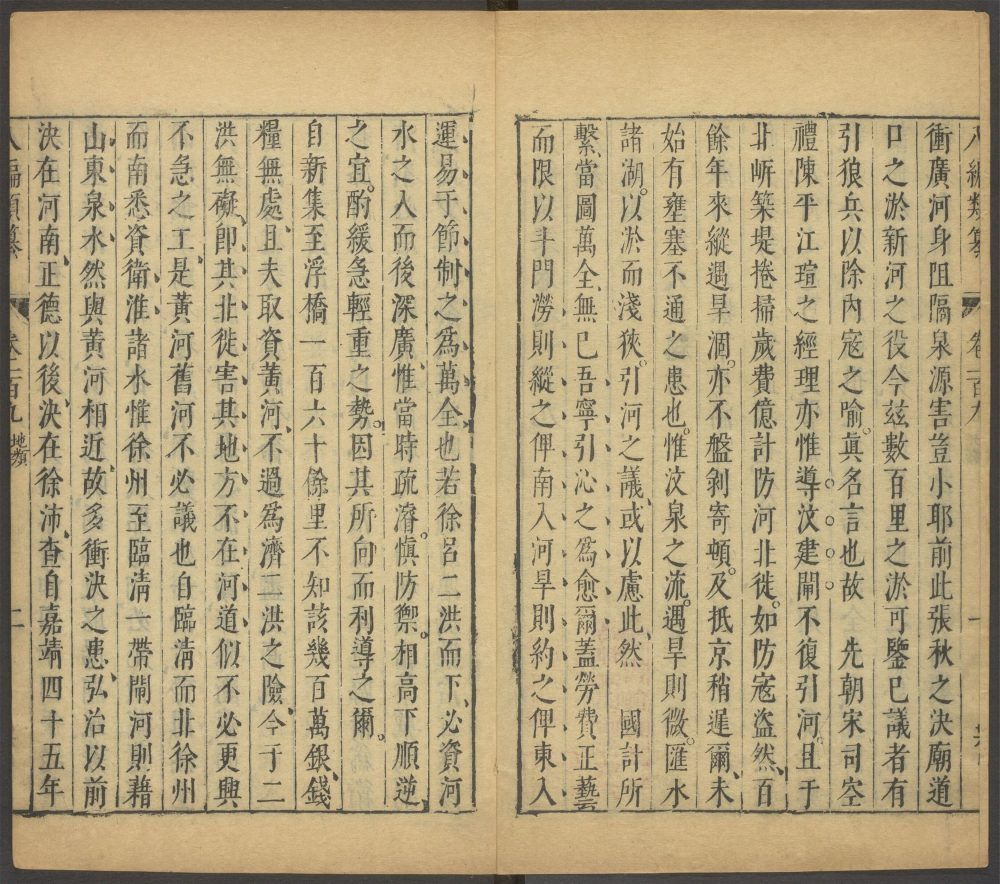 八編類纂 卷二百九 一
衝廣河身阻隔泉源害豈小耶前此張秋之決廟道
口之淤新河之役今玆數百里之淤可鑒已議者有
引狼兵以除內寇之喻真名言也故 先朝宋司空
禮陳平江瑄之經理亦惟導汶建閘不復引河且于
北岍築堤捲掃歲費億計防河北徙如防寇盜然百
餘年來縱遇旱涸亦不盤剝寄頓及抵京稍遲爾未
始有壅塞不通之患也惟汶泉之流遇旱則微匯水
諸湖以淤而淺狹引河之議或以慮此然 國計所
繫當圖萬全無已吾寧引沁之為愈爾蓋勞費正藝
而限以斗門澇則縱之俾南入河旱則約之俾東入
運易于節制之為萬全也若徐呂二洪而下必資河
水之入而後深廣惟當時疏濬慎防禦相高下順逆
之宜酌緩急輕重之勢因其所向而利導之爾
自新集至浮橋一百六十餘里不知該幾百萬銀錢
糧無處且夫取資黃河不過為濟二洪之險今于二
洪無礙即其北徙害其地方不在河道似不必更興
不急之工是黃河舊河不必議也自臨清而北徐州
而南悉資衛淮諸水惟徐州至臨清一帶閘河則藉
山東泉水然與黃河相近故多衝決之患弘治以前
決在河南正德以後決在徐沛查自嘉靖四十五年
八編類纂 卷二百九 地類 二